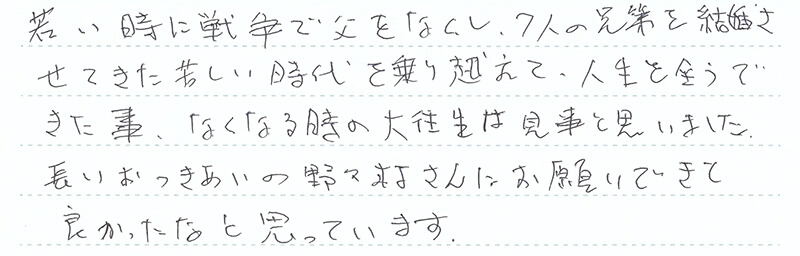 若い時に戦争で父をなくし、7人の兄弟を結婚さ
せてきた苦しい時代を乗り越えて、人生を全うで
きた事、なくなる時の大往生は見事と思いました。
長いおつきあいの野々村さんにお願いできて
良かったなと思っています。